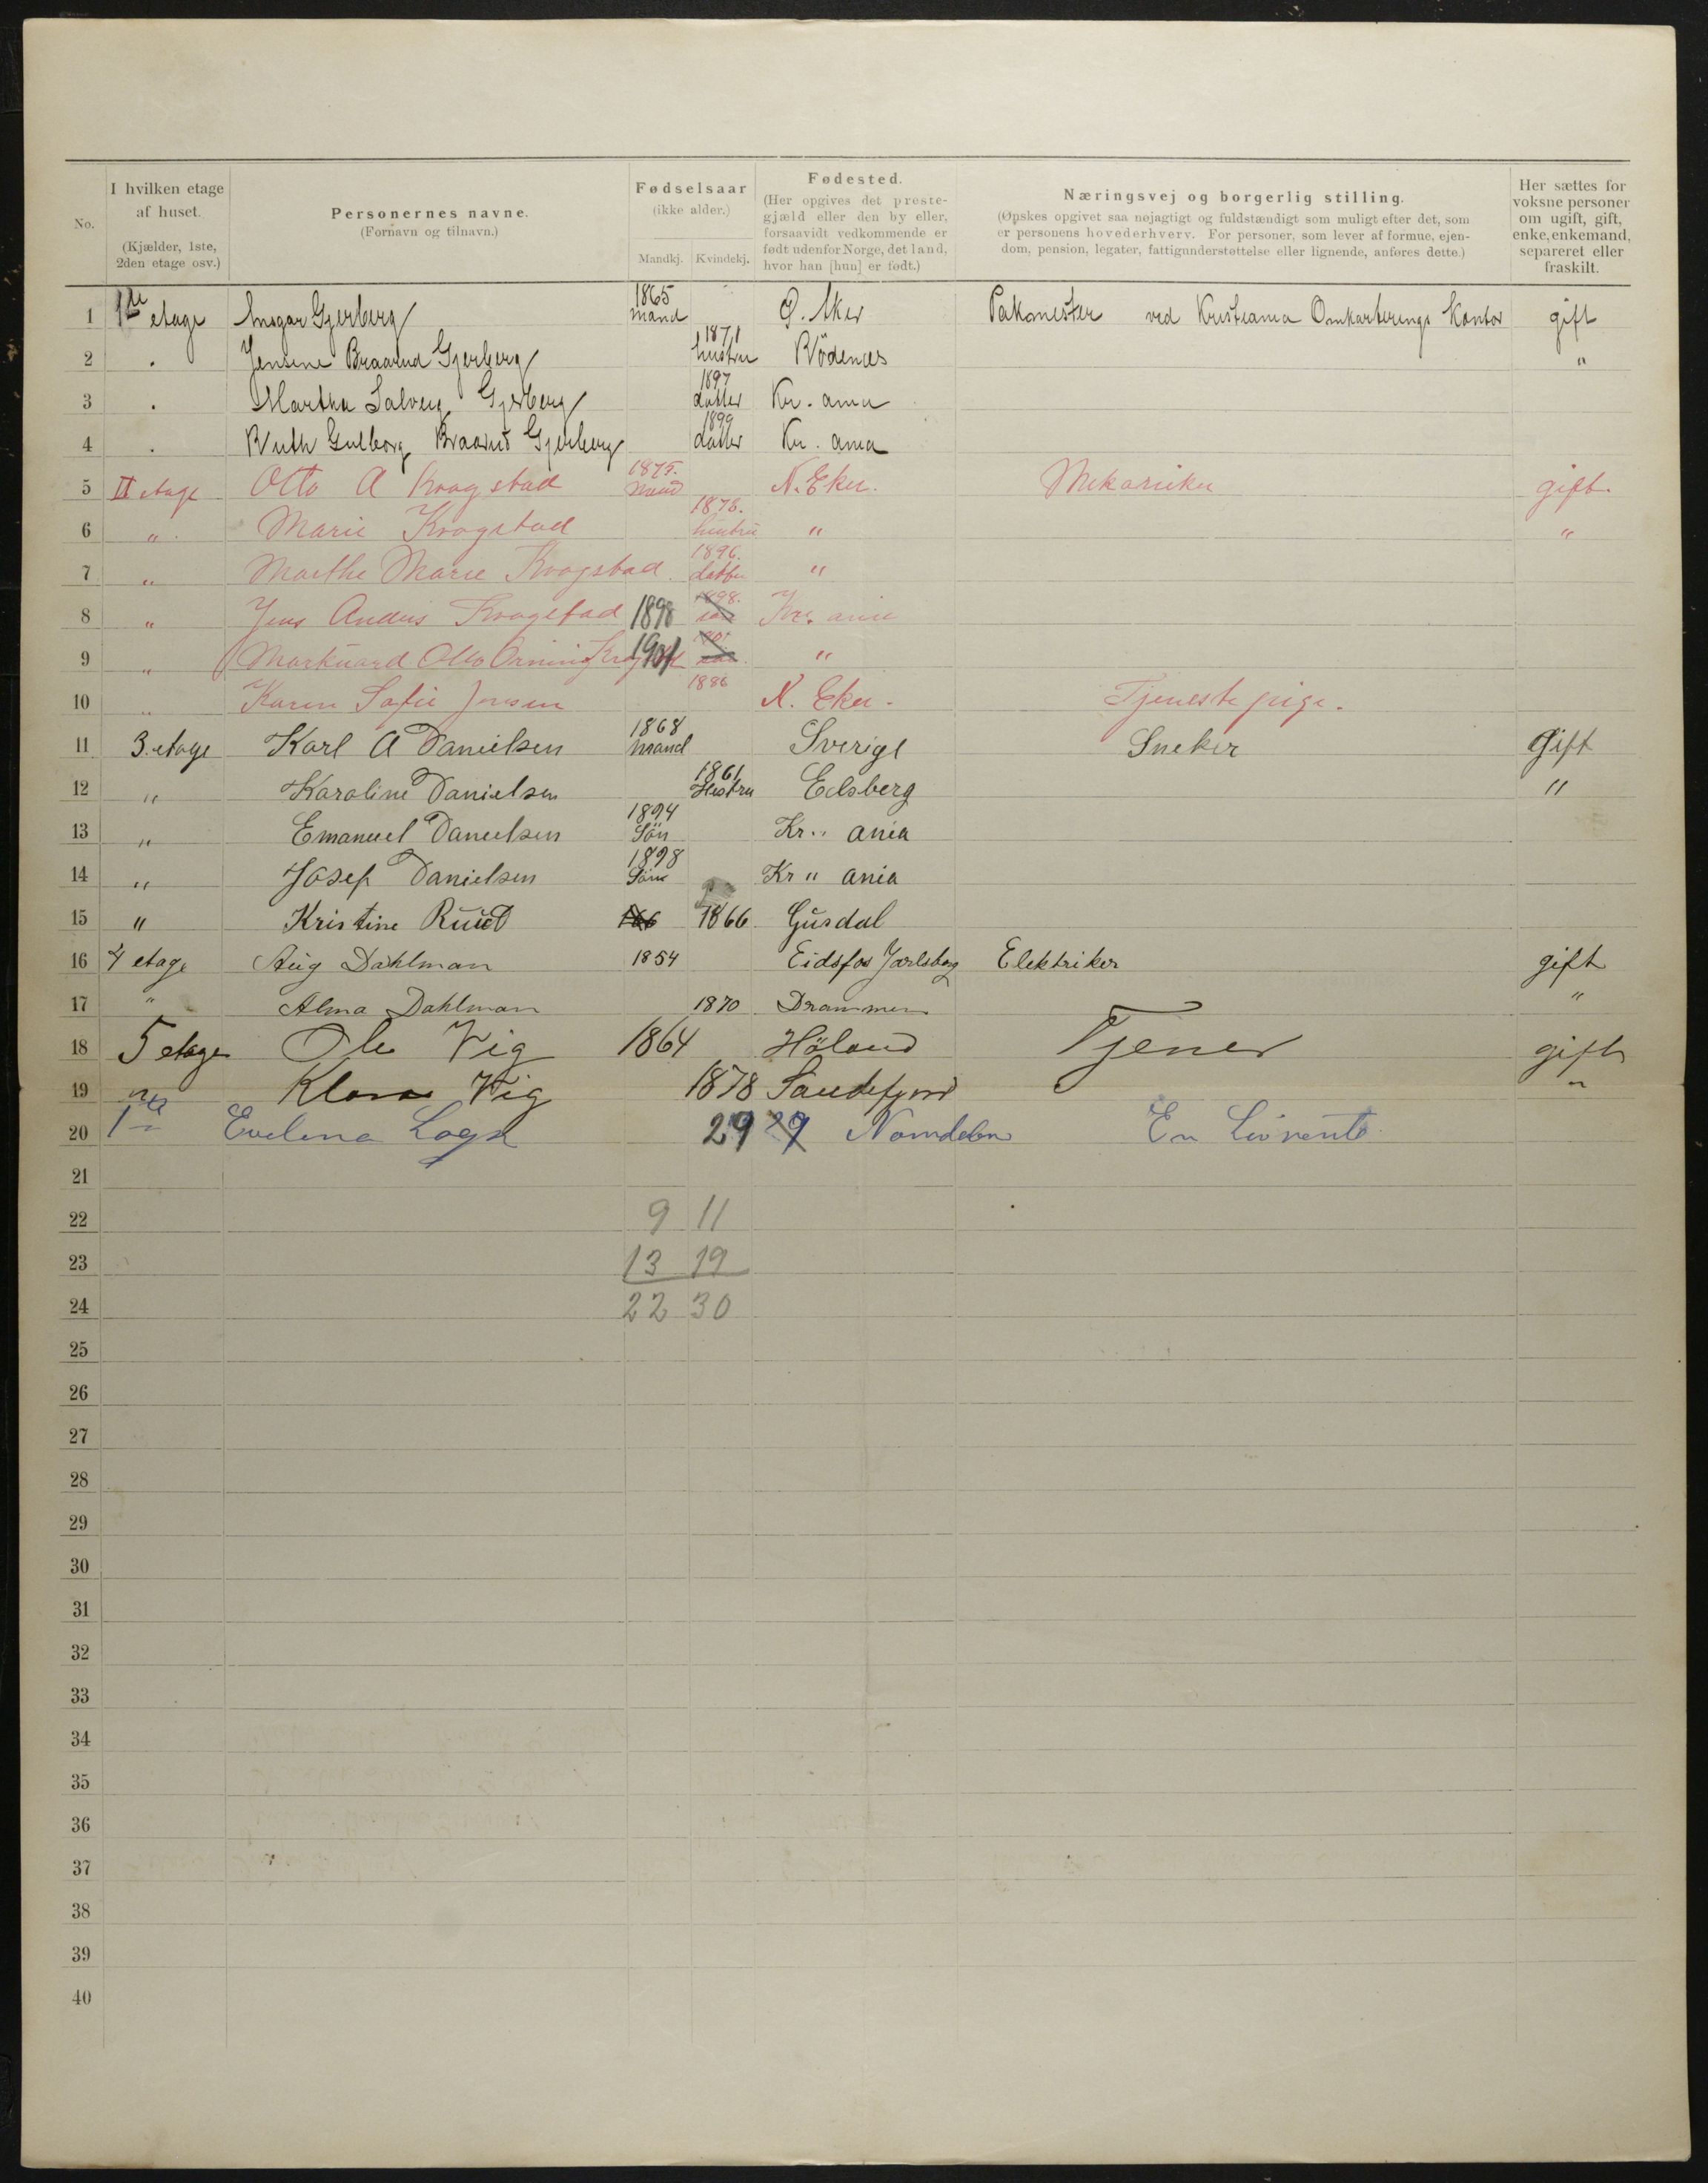 No. | I hvilken etage af huset. (Kjælder, 1ste, 2den etage osv.) | Personernes navne. (Fornavn og tilnavn.) | Fødselsaar (ikke alder.) Mandkj. Kvindekj. | Fødested. (Her opgives det prestegjæld eller den by eller, forsaavidt vedkommende er født udenfor Norge, det land, hvor han [hun] er født.) | Næringsvej og borgerlig stilling. (Ønskes opgivet saa nøjagtigt og fuldstændigt som muligt efter det, som er personens hovederhverv. For personer, som lever af formue, ejendom, pension, legater, fattigunderstøttelse eller lignende, anføres dette.) | Her sættes for voksne personer om ugift, gift, enke, enkemand, separeret eller fraskilt.
1 1ste etage Ansgar Gjerberg 1865 mand Ø. Aker Pakmester ved Kristiania Omkarterings Kontor gift
2 . Jensine Braarud Gjerberg 1871 hustru Rödenes "
3 . Martha Solveig Gjerberg 1897 datter Kr. ania
4 . Ruth Gulborg Braarud Gjerberg 1899 datter Kr. ania
5 II etage Otto A Krogstad 1875. mand N. Eker. Mekaniker gift.
6 " Marie Krogstad 1878. hustru " "
7 " Marthe Marie Krogstad 1896. datter "
8 " Jens Anders Krogstad 1898 1898. Kr. ania
9 " Markuard Otto Krogstad 1901 1901 "
10 " Karen Sofie Jensen 1886 N. Eker. Tjenestepige.
11 3. etage Karl A Danielsen 1868 Mand Sverige Sneker Gift
12 " Karoline Danielsen 1861 Hustru Edsberg "
13 " Emanuel Danielsen 1894 Sön Kr " ania
14 " Josef Danielsen 1898 Sön Kr " ania
15 " Kristine Ruud 1866 Gusdal
16 4 etage Aug Dahlman 1854 Eidsfos Jarlsberg Elektriker gift
17 " Alma Dahlman 1870 Drammen "
18 5 etage Ole Vig 1864 Höland Tjener gift
19 " Klara Vig 1878 Sandefjord "
20 1ste Evelina 29 29 Namdalen En Livrente
21
22 9 11
23 13 19
24 22 30
25
26
27
28
29
30
31
32
33
34
35
36
37
38
39
40